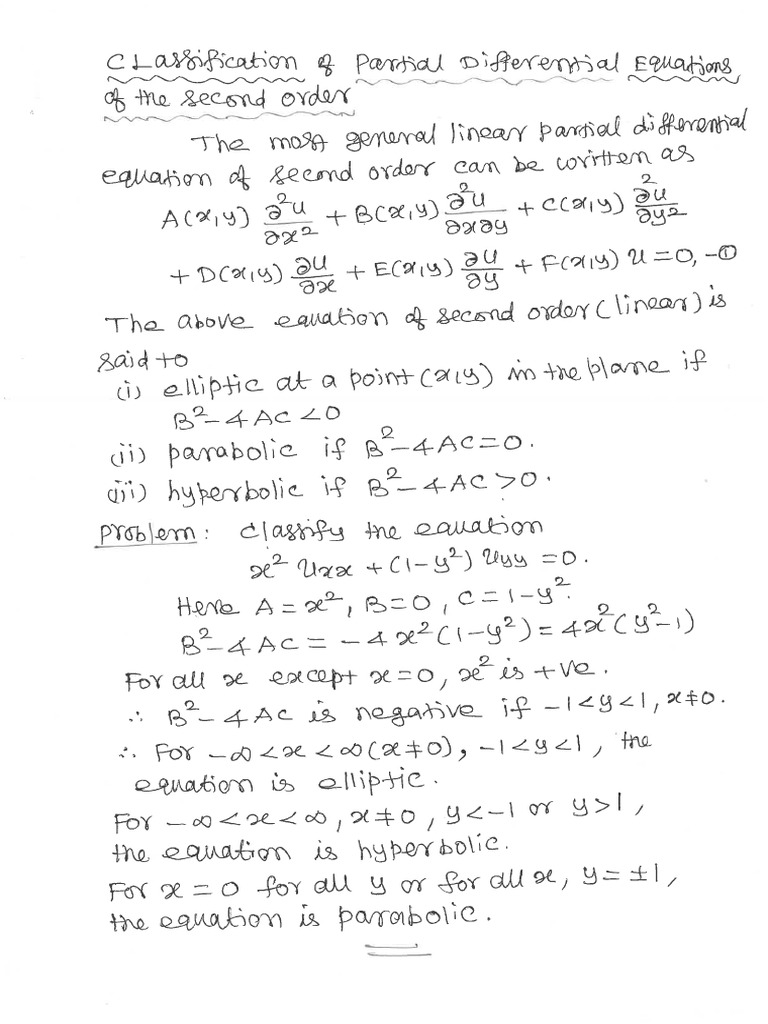 Classification of Partial Differential Equations
of the second order
The most general linear partial differential
equation of second order can be written as
A(x,y) ∂²u/∂x² + B(x,y) ∂²u/∂x∂y + C(x,y) ∂²u/∂y²
+ D(x,y) ∂u/∂x + E(x,y) ∂u/∂y + F(x,y) u = 0, -①
The above equation of second order (linear) is
said to
(i) elliptic at a point (x,y) in the plane if
B² - 4AC < 0
(ii) parabolic if B² - 4AC = 0.
(iii) hyperbolic if B² - 4AC > 0.
Problem: Classify the equation
x² uxx + (1-y²) uyy = 0.
Here A = x², B = 0, C = 1-y².
B² - 4AC = -4x²(1-y²) = 4x²(y²-1)
For all x except x = 0, x² is +ve.
∴ B² - 4AC is negative if -1<y<1, x≠0.
∴ For -∞<x<∞ (x≠0), -1<y<1, the
equation is elliptic.
For -∞<x<∞, x≠0, y<-1 or y>1,
the equation is hyperbolic.
For x = 0 for all y or for all x, y = ±1,
the equation is parabolic.